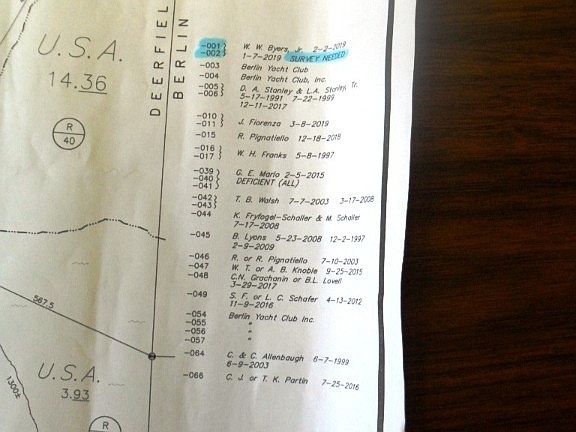 U.S.A.
14.36
R
40
DEERFIEL
BERLIN
-001 } W. W. Byers, Jr. 2-2-2019
-002 } 1-7-2019 SURVEY NEEDED
-003 Berlin Yacht Club
-004 Berlin Yacht Club, Inc.
-005 } D. A. Stanley & L.A. Stanley, Tr.
-006 } 5-17-1991 7-22-1999
12-11-2017
-010 }
-011 } J. Fiorenza 3-8-2019
-015 R. Pignatiello 12-18-2018
-016 }
-017 } W. H. Franks 5-8-1997
-039 } G. E. Mario 2-5-2015
-040 } DEFICIENT (ALL)
-041 }
-042 } T. B. Walsh 7-7-2003 3-17-2008
-043 }
-044 K. Fryfogel-Schaller & M. Schaller
7-17-2008
-045 B. Lyons 5-23-2008 12-2-1997
2-9-2009
-046 R. or R. Pignatiello 7-10-2003
-047 W. T. or A. B. Knoble 9-25-2015
-048 C.N. Grachanin or B.L. Lovell
3-29-2017
-049 S. F. or L. C. Schafer 4-13-2012
11-9-2016
-054 Berlin Yacht Club Inc.
-055 "
-056 "
-057 "
-064 C. & C. Allenbaugh 6-7-1999
6-9-2003
-066 C. J. or T. K. Partin 7-25-2016
567.5
U.S.A.
3.93
1300±
R